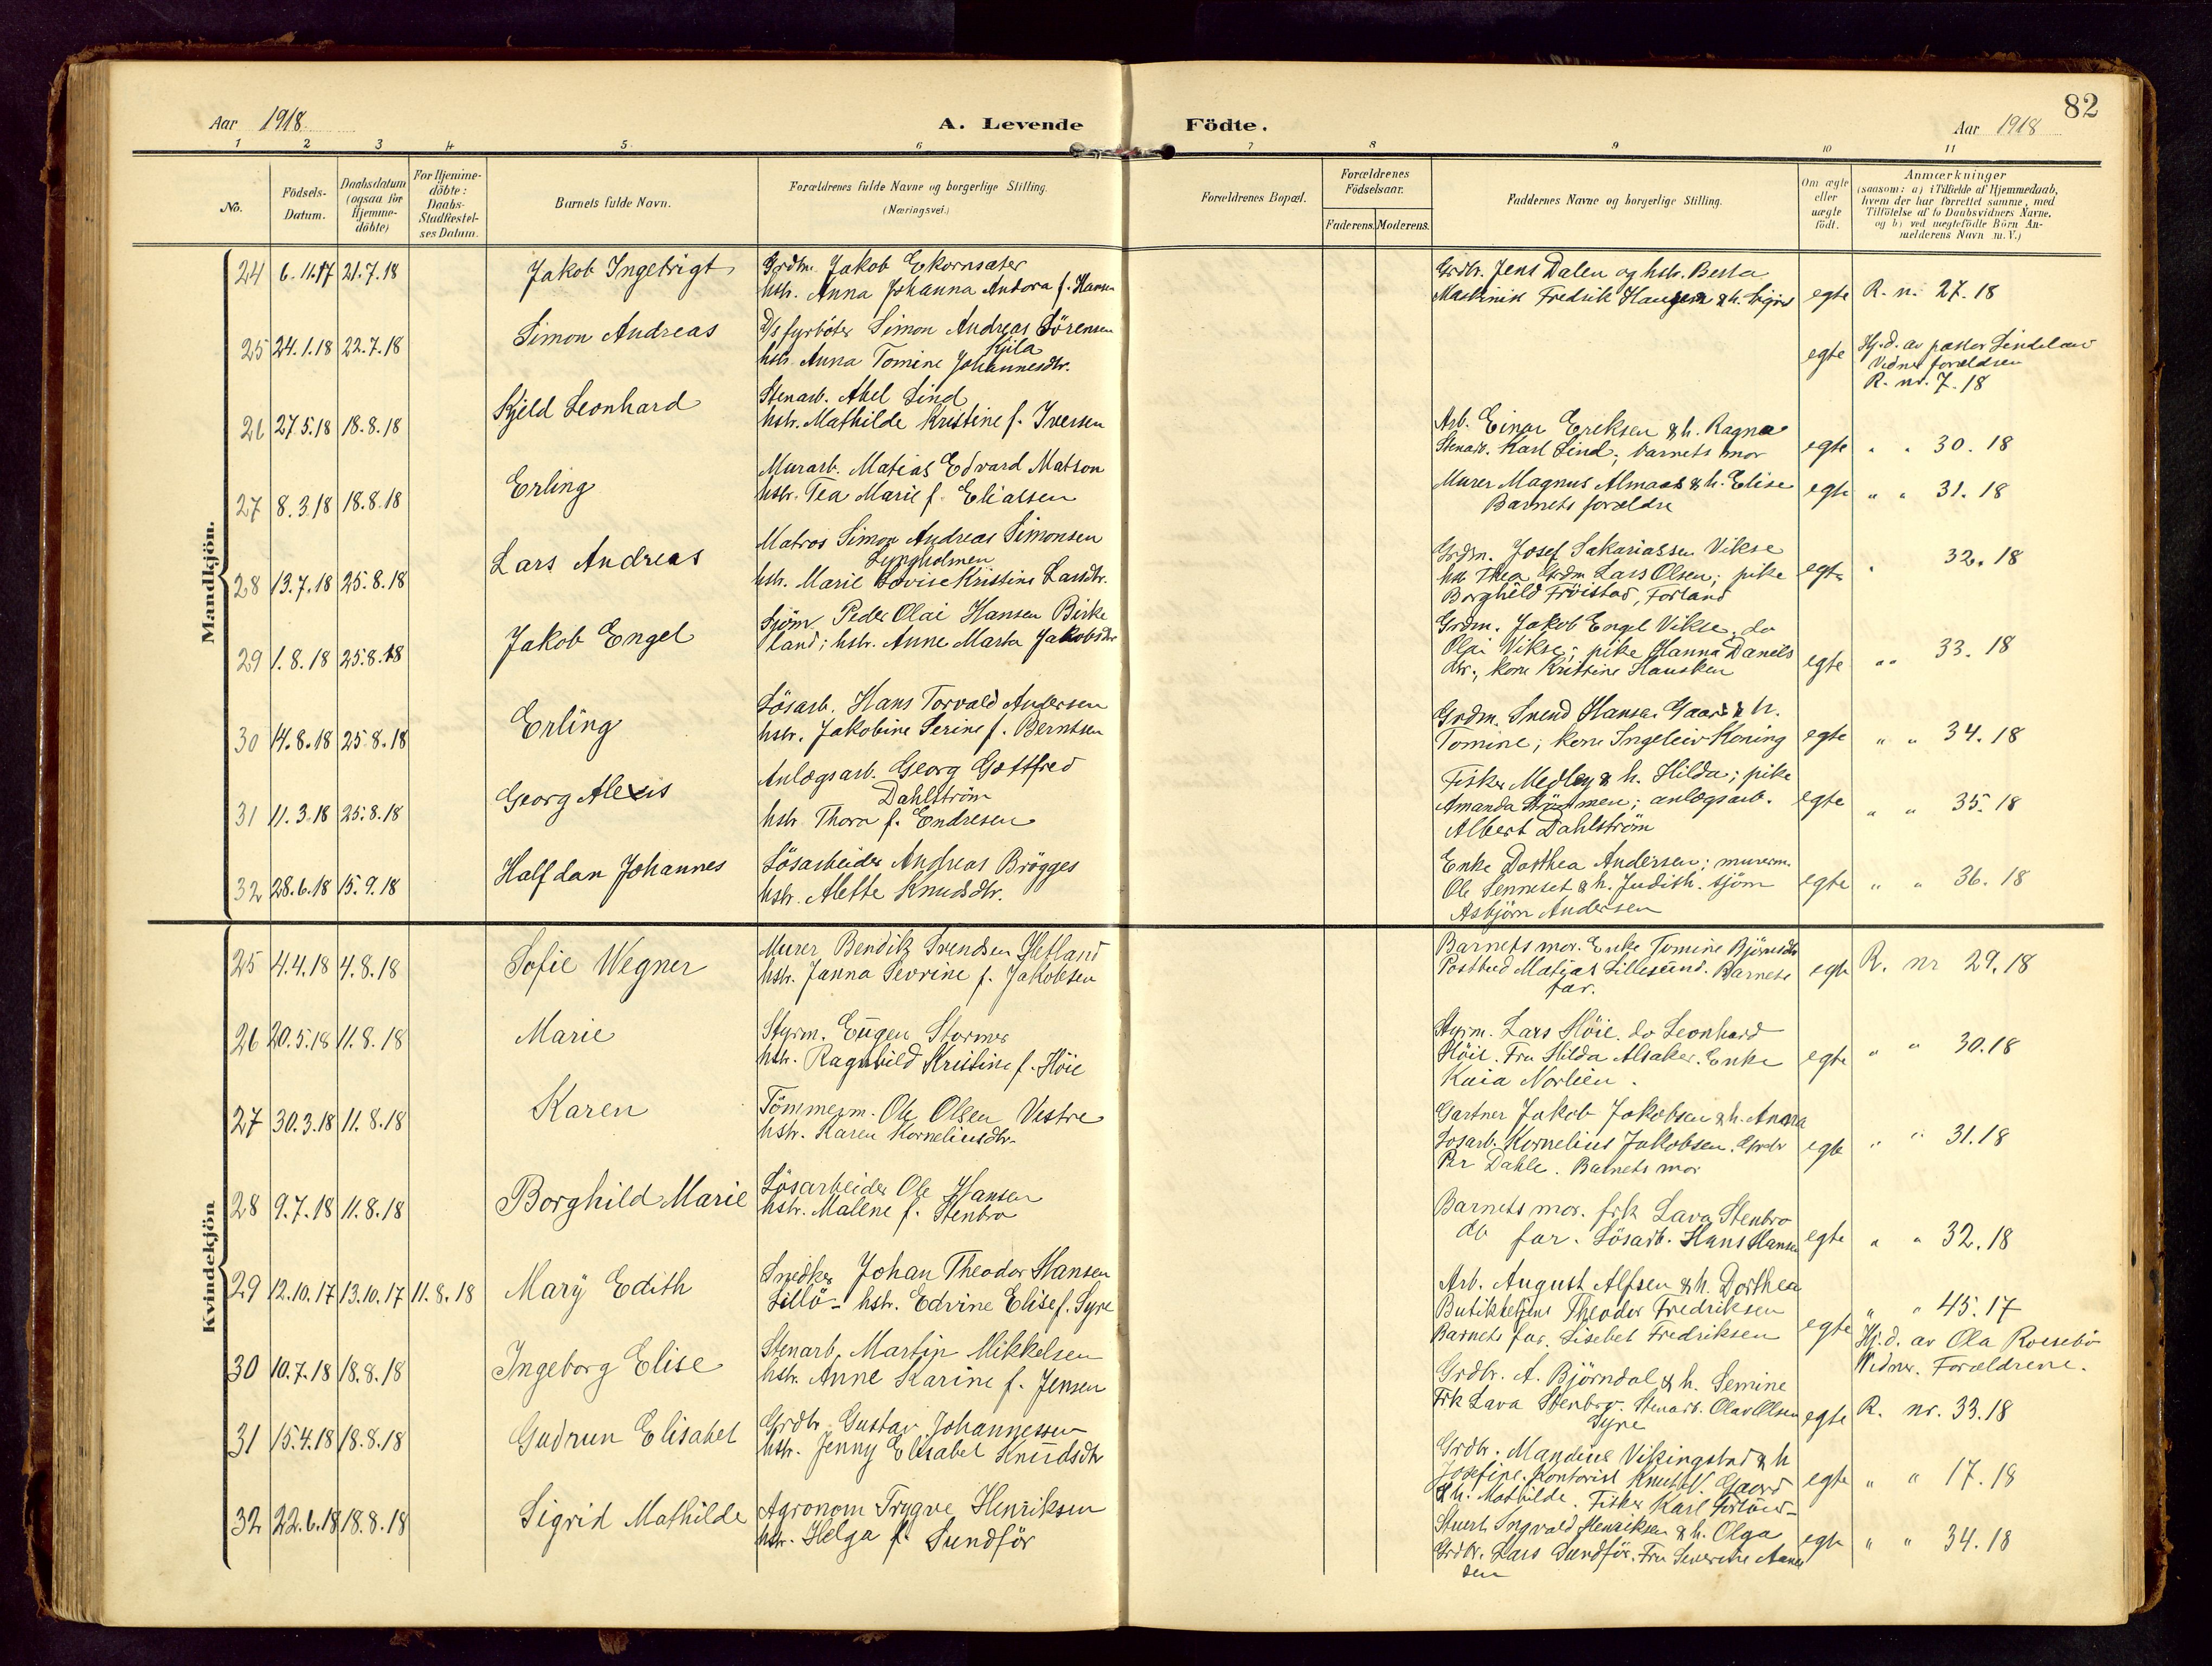 82
Aar 1918
A. Levende Födte.
Aar 1918
1 2 3 4 5 6 7 8 9 10 11
No.
Födsels-Datum.
Daabsdatum (ogsaa for Hjemme-döbte)
For Hjemme-döbte: Daabs-Stadfæstel-ses Datum.
Barnets fulde Navn.
Forældrenes fulde Navne og borgerlige Stilling.
(Næringsvei.)
Forældrenes Bopæl.
Forældrenes Födselsaar.
Faderens. Moderens.
Faddernes Navne og borgerlige Stilling.
Om ægte eller uægte födt.
Anmærkninger
(saasom: a) i Tilfælde af Hjemmedaab,
hvem der har forrettet samme, med
Tilföielse af to Daabsvidners Navne.
og b) ved uægtefödte Börn An-
melderens Navn m. V.)
Mandkjön.
24 6.11.17 21.7.18 Jakob Ingebrigt
Grdbr. Jakob Ekornsæter
hstr. Anna Johanna Andora f. Hansen
Grdbr. Jens Dalen og hstr. Berta
Maskinist Fredrik Haugen & h. Sigrid
egte R. n. 27.18
25 24.1.18 22.7.18 Simon Andreas
D/s fyrböter Simon Andreas Sörensen
Kjila
hstr. Anna Tomine Johannesdtr.
egte Hj.d. av pastor Lindeland
Vidner forældren
R. nr. 7.18
26 27.5.18 18.8.18 Kjeld Leonhard
Stenarb. Abel Lind
hstr. Mathilde Kristine f. Iversen
Arb. Einar Ereksen & h. Ragna
Stenarb. Karl Lind; barnets mor
egte " " 30.18
27 8.3.18 18.8.18 Erling
Murarb. Matias Edvard Matson
hstr. Tea Marie f. Eliassen
Murer Magnus Almaas & h. Elise
Barnets forældre
egte " " 31.18
28 13.7.18 25.8.18 Lars Andreas
Matros Simon Andreas Simonsen
Lyngholmen
hstr. Marie Lovise Kristine Larsdtr.
Grdm. Josef Sakariassen Vikse
hstr Thea Grdm Lars Olsen; pike
Borghild Fröistad, Forland
egte " 32.18
29 1.8.18 25.8.18 Jakob Engel
Sjöm. Peder Olai Hansen Birke
land; hstr. Anne Marta Jakobsdtr
Grdm. Jakob Engel Vikse. do
Olai Vikse; pike Hanna Daniels
dtr; kone Kristine Hausken
egte " " 33.18
30 14.8.18 25.8.18 Erling
Lösarb. Hans Torvald Andersen
hstr. Jakobine Serine f. Berntsen
Grdm. Svend Hansen Gaard & h.
Tomine; kone Ingeleiv Koning
egte " " 34.18
31 11.3.18 25.8.18 Georg Alexis
Anlægsarb. Georg Gottfred
Dahlström
hstr Thora f. Endresen
Fisker Medley & h. Hilda; pike
Amanda; anlægsarb.
Albert Dahlström
egte " " 35.18
32 28.6.18 15.9.18 Halfdan Johannes
Lösarbeider Andreas Brögges
hstr. Alette Knudsdtr.
Enke Dorthea Andersen; murerm.
Ole Senneset & h. Judith. sjöm
Asbjörn Andersen
egte " " 36.18
Kvindekjön
25 4.4.18 4.8.18 Sofie Wegner
Murer Bendik Svendsen Hetland
hstr. Janna Sevrine f. Jakobsen
Barnets mor. Enke Tomine Björnsdtr
Postbud Matias Lillesund. Barnets
far.
egte R. nr 29.18
26 20.5.18 11.8.18 Marie
Styrm. Eugen Stormer
hstr. Ragnhild Kristine f. Höie
Styrm. Lars Höie. do Leonhard
Höie. Fru Hilda Alsaker. Enke
Kaia Norlien.
egte " " 30.18
27 30.3.18 11.8.18 Karen
Tömmerm. Ole Olsen Vestre
hstr. Karen Korneliusdtr.
Gartner Jakob Jakobsen & h. Anna
Losarb. Kornelius Jakobsen. Grdbr
Per Dahle. Barnets mor
egte " " 31.18
28 9.7.18 11.8.18 Borghild Marie
Lösarbeider Ole Hansen
hstr. Malene f. Stenbro
Barnets mor. frk Lava Stenbro
do far. Lösarb. Hans Hansen
egte " " 32.18
29 12.10.17 13.10.17 11.8.18 Marÿ Edith
Snedker Johan Theodor Hansen
Lillö - hstr. Edvine Elise f. Syre
Arb. August Alfsen & h. Dorthea
Theodor Fredriksen
Barnets far. Lisebet Fredriksen
egte " " 45.17
Hj.d. av Ola Roesebö
Vidner. Forældrene.
30 10.7.18 18.8.18 Ingeborg Elise
Stenarb. Martin Mikkelsen
hstr. Anne Karine f. Jensen
Grdbr. A. Björndal & h. Semine
Frk Lava Stenbro. Stenarb. Olav Olsen
Syre
egte R. nr. 33.18
31 15.4.18 18.8.18 Gudrun Elisabet
Grdbr Gustav Johannessen
hstr. Jenny Elisabet Knudsdtr
Grdbr. Mandius Vikingstad & h
Josefine. Kontorist Knut V. Gaard
& h. Mathilde. Fisker Karl
egte " " 17.18
32 22.6.18 18.8.18 Sigrid Mathilde
Agronom Trygve Henriksen
hstr. Helga f. Sundför
Stuert Ingvald Henriksen & h. Olga
Grdbr. Lars Sundför. Fru Severine Aanen
sen
egte " " 34.18